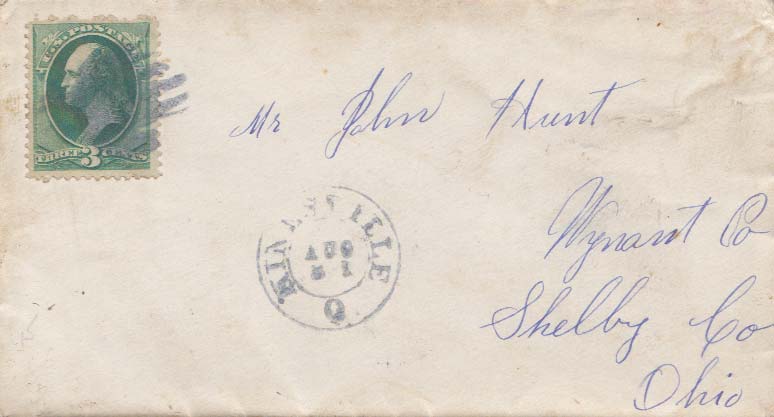 U.S. POSTAGE
THREE 3 CENTS
Mr John Hunt
AUG
Wynant Po
Shelby Co
Ohio